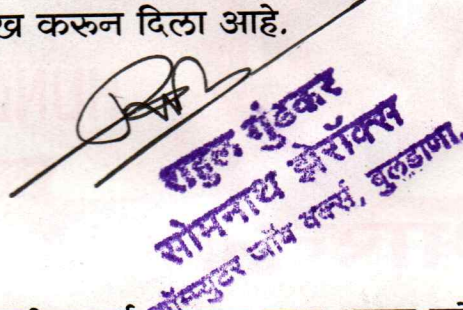 ख करून दिला आहे.
राहुल गुंडकर
सोमनाथ झेरॉक्स
कॉम्प्युटर जॉब वर्क्स, बुलडाणा.